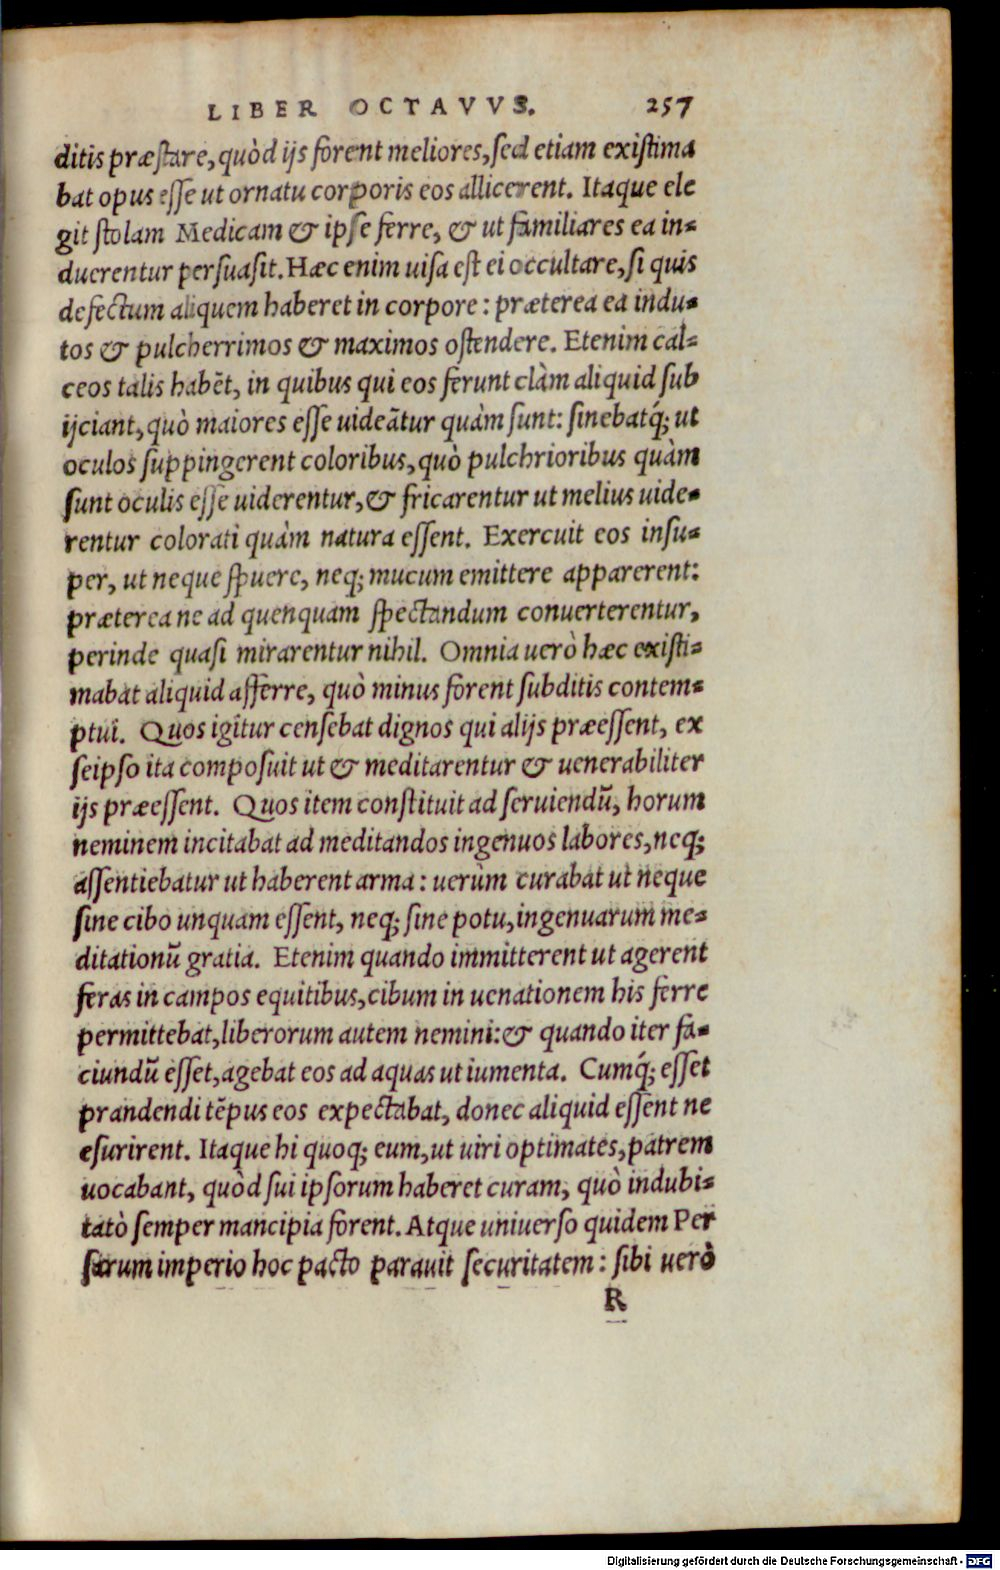 LIBER OCTAVVS. 257
ditis præstare, quòd ijs forent meliores, sed etiam existima
bat opus esse ut ornatu corporis eos allicerent. Itaque ele
git stolam Medicam & ipse ferre, & ut familiares ea in-
duerentur persuasit. Hæc enim uisa est ei occultare, si quis
defectum aliquem haberet in corpore: præterea ea indu-
tos & pulcherrimos & maximos ostendere. Etenim cal-
ceos talis habēt, in quibus qui eos ferunt clàm aliquid sub
ijciant, quò maiores esse uideãtur quàm sunt: sinebatq́; ut
oculos suppingerent coloribus, quò pulchrioribus quàm
sunt oculis esse uiderentur, & fricarentur ut melius uide-
rentur colorati quàm natura essent. Exercuit eos insu-
per, ut neque spuere, neq; mucum emittere apparerent:
præterea ne ad quenquam spectandum conuerterentur,
perinde quasi mirarentur nihil. Omnia uerò hæc existi-
mabat aliquid afferre, quò minus forent subditis contem-
ptui. Quos igitur censebat dignos qui alijs præessent, ex
seipso ita composuit ut & meditarentur & uenerabiliter
ijs præessent. Quos item constituit ad seruiendũ, horum
neminem incitabat ad meditandos ingenuos labores, neq;
assentiebatur ut haberent arma: uerùm curabat ut neque
sine cibo unquam essent, neq; sine potu, ingenuarum me-
ditationũ gratia. Etenim quando immitterent ut agerent
feras in campos equitibus, cibum in uenationem his ferre
permittebat, liberorum autem nemini: & quando iter fa-
ciundũ esset, agebat eos ad aquas ut iumenta. Cumq́; esset
prandendi tēpus eos expectabat, donec aliquid essent ne
esurirent. Itaque hi quoq; eum, ut uiri optimates, patrem
uocabant, quòd sui ipsorum haberet curam, quò indubi-
tatò semper mancipia forent. Atque uniuerso quidem Per
sarum imperio hoc pacto parauit securitatem: sibi uerò
R
Digitalisierung gefördert durch die Deutsche Forschungsgemeinschaft - DFG